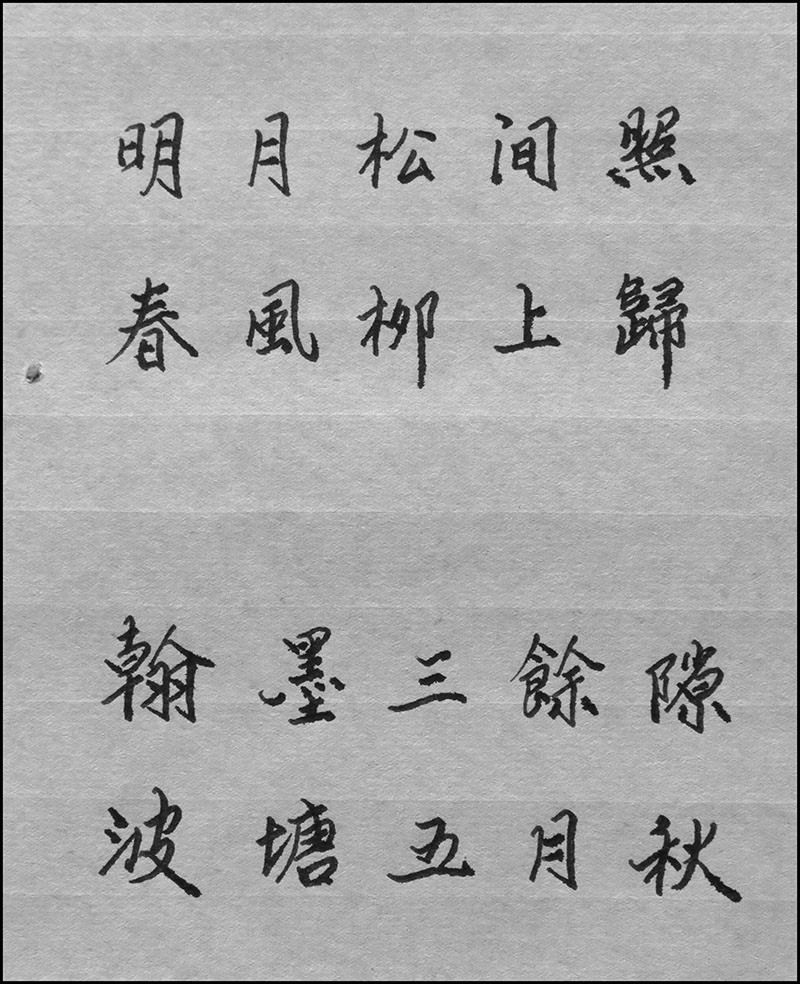 明月松间照
春風柳上歸
翰墨三餘隙
波塘五月秋